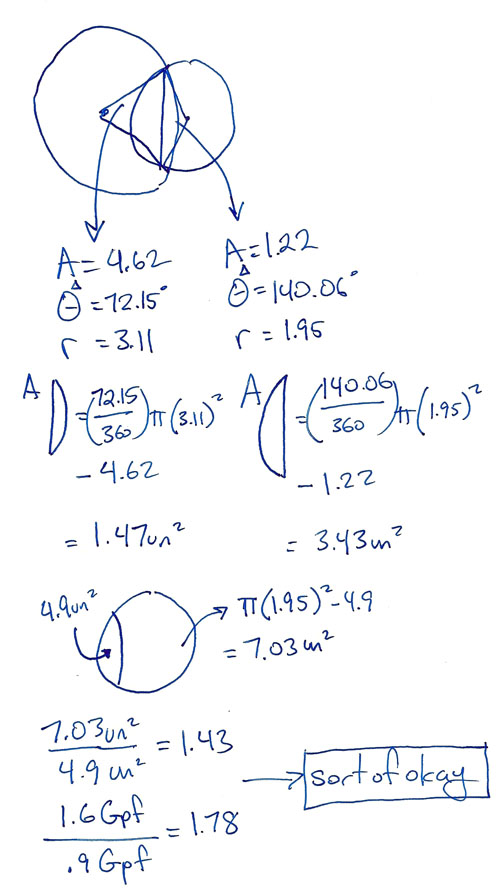 A△ = 4.62
θ = 72.15°
r = 3.11
A△ = 1.22
θ = 140.06°
r = 1.95
A = (72.15/360) π (3.11)²
- 4.62
= 1.47un²
A = (140.06/360) π (1.95)²
- 1.22
= 3.43un²
4.9un²
π(1.95)² - 4.9
= 7.03un²
7.03un²/4.9un² = 1.43
1.6 Gpf/.9 Gpf = 1.78
sort of okay